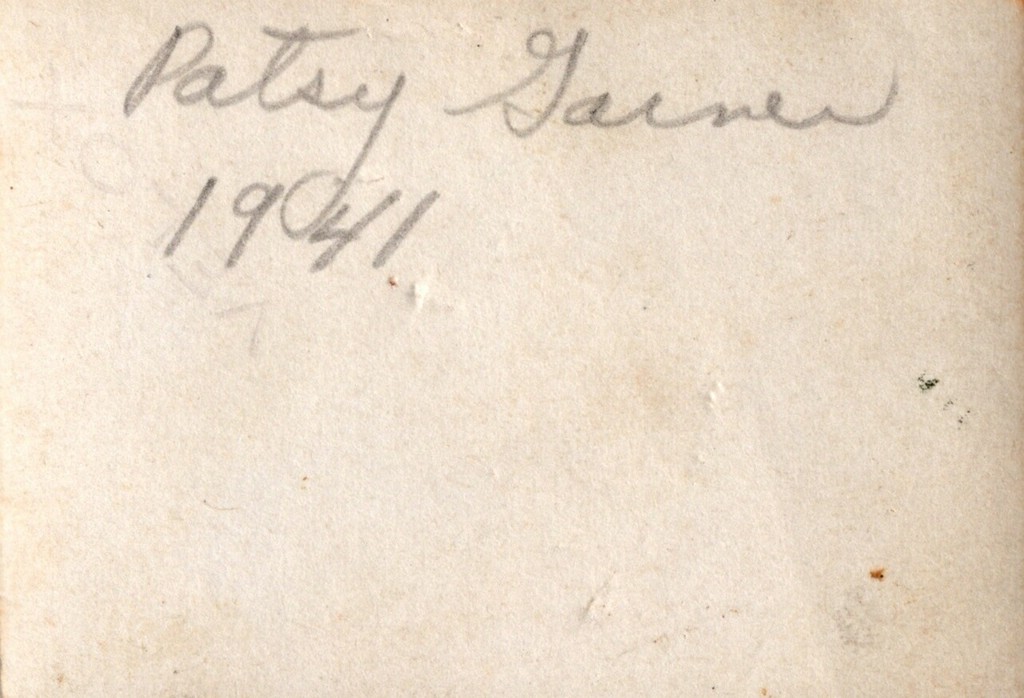 Patsy Garner
1941